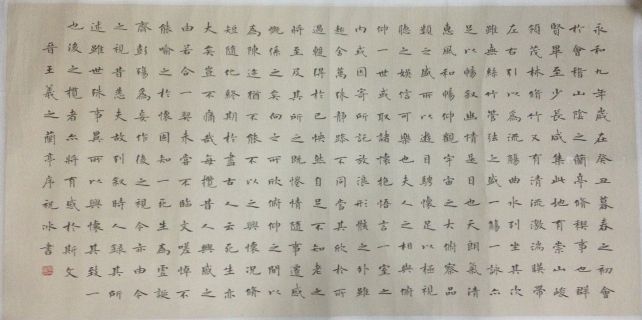 永和九年歲在癸丑暮春之初會
於會稽山陰之蘭亭脩稧事也群
賢畢至少長咸集此地有崇山峻
領茂林脩竹又有清流激湍暎帶
左右引以為流觴曲水列坐其次
雖無絲竹管弦之盛一觴一詠亦
足以暢敘幽情是日也天朗氣清
惠風和暢仰觀宇宙之大俯察品
類之盛所以遊目騁懷足以極視
聽之娛信可樂也夫人之相與俯
仰一世或取諸懷抱悟言一室之
內或因寄所託放浪形骸之外雖
趣舍萬殊靜躁不同當其欣於所
遇暫得於己怏然自足不知老之
將至及其所之既惓情隨事遷感
慨係之矣向之所欣俛仰之間以
為陳迹猶不能不以之興懷況脩
短隨化終期於盡古人云死生亦
大矣豈不痛哉每攬昔人興感之
由若合一契未嘗不臨文嗟悼不
能喻之於懷固知一死生為虛誕
齊彭殤為妄作後之視今亦由今
之視昔悲夫故列敘時人錄其所
述雖世殊事異所以興懷其致一
也後之攬者亦將有感於斯文
晉王羲之蘭亭序祝冰書